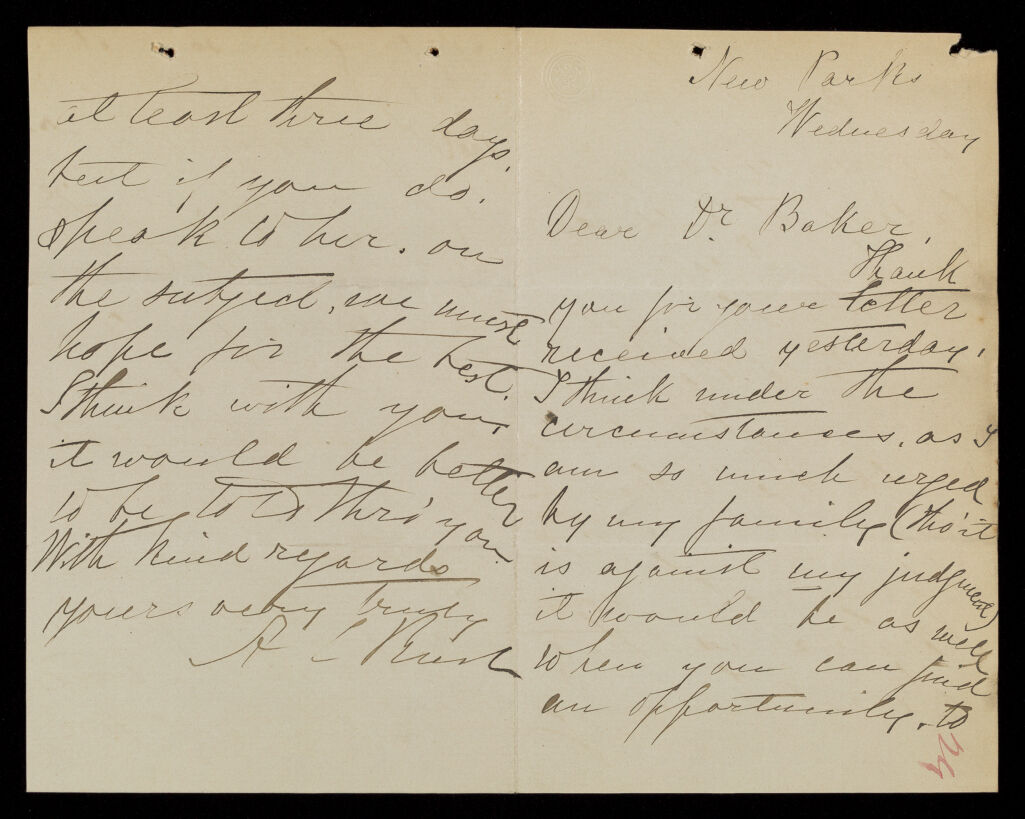 New Parks
Wednesday
Dear Dr. Baker,
Thank
you for your letter
received yesterday.
I think under the
circumstances, as I
am so much urged
by my family (tho' it
is against my judgment)
it would be as well
when you can find
an opportunity, to
24
at least three days,
but if you do.
speak to her. on
the subject, we must
hope for the best.
I think with you,
it would be better
to be told thro' you.
With kind regards
yours very truly
A